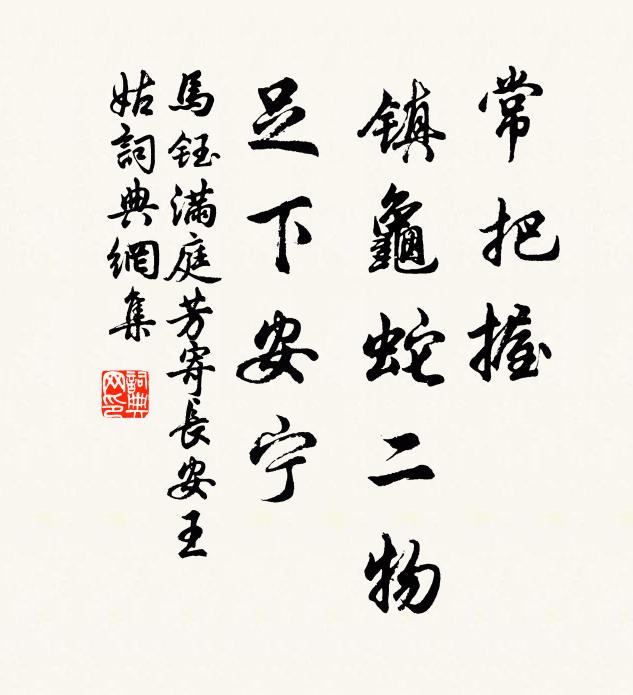 常把握
镇龜蛇二物
足下安宁
馬鈺满庭芳寄長安王
姑詞典網集
詞典网印